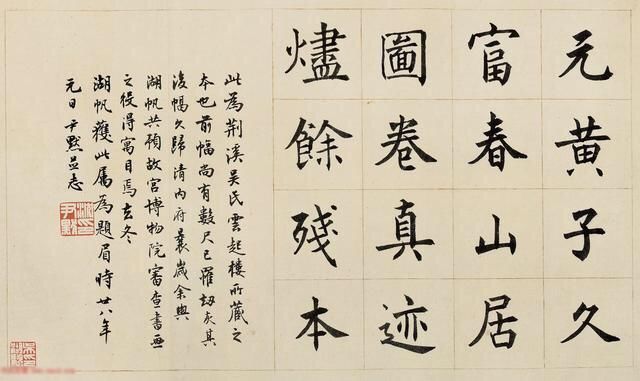 元黃子久
富春山居
圖卷真迹
燼餘殘本
此為荆溪吳氏雲起樓所藏之
本也前幅尚有數尺已罹劫灰其
後幅久歸清內府曩歲余與
湖帆共預故宮博物院審查書画
之役得寓目焉去冬
湖帆獲此屬為題眉時廿八年
元日尹默並志